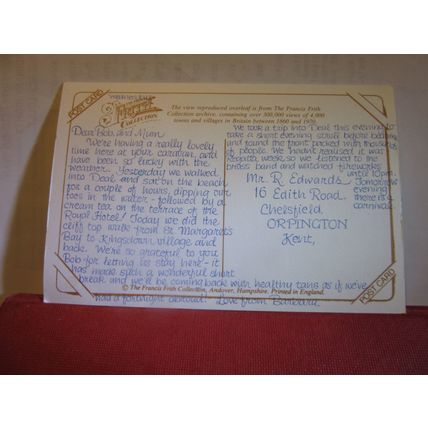 POST CARD
The Francis Frith
COLLECTION
The view reproduced overleaf is from The Francis Frith
Collection archive, containing over 300,000 views of 4,000
towns and villages in Britain between 1860 and 1970.
Dear Bob, and Mum,
We're having a really lovely
time here at your caravan, and
have been so lucky with the
weather. Yesterday we walked
into Deal and sat on the beach
for a couple of hours, dipping our
toes in the water - followed by a
cream tea on the terrace of the
Royal Hotel! Today we did the
cliff top walk from St Margaret's
Bay to Kingsdown village and
back. We're so grateful to you
Bob for letting us stay here - it
has made such a wonderful short
break and we'll be coming back with healthy tans as if we've
had a fortnight abroad! Love from Barbara.
We took a trip into Deal this evening to
take a short evening stroll before
and found the front packed with thousands
of people. We hadn't realised it was
Regatta week, so we listened to the
brass band and watched fireworks
until 10pm.
Tomorrow
evening
there is a
carnival.
Mr R Edwards
16 Edith Road
Chelsfield
ORPINGTON
Kent,
© The Francis Frith Collection, Andover, Hampshire, Printed in England.
POST CARD